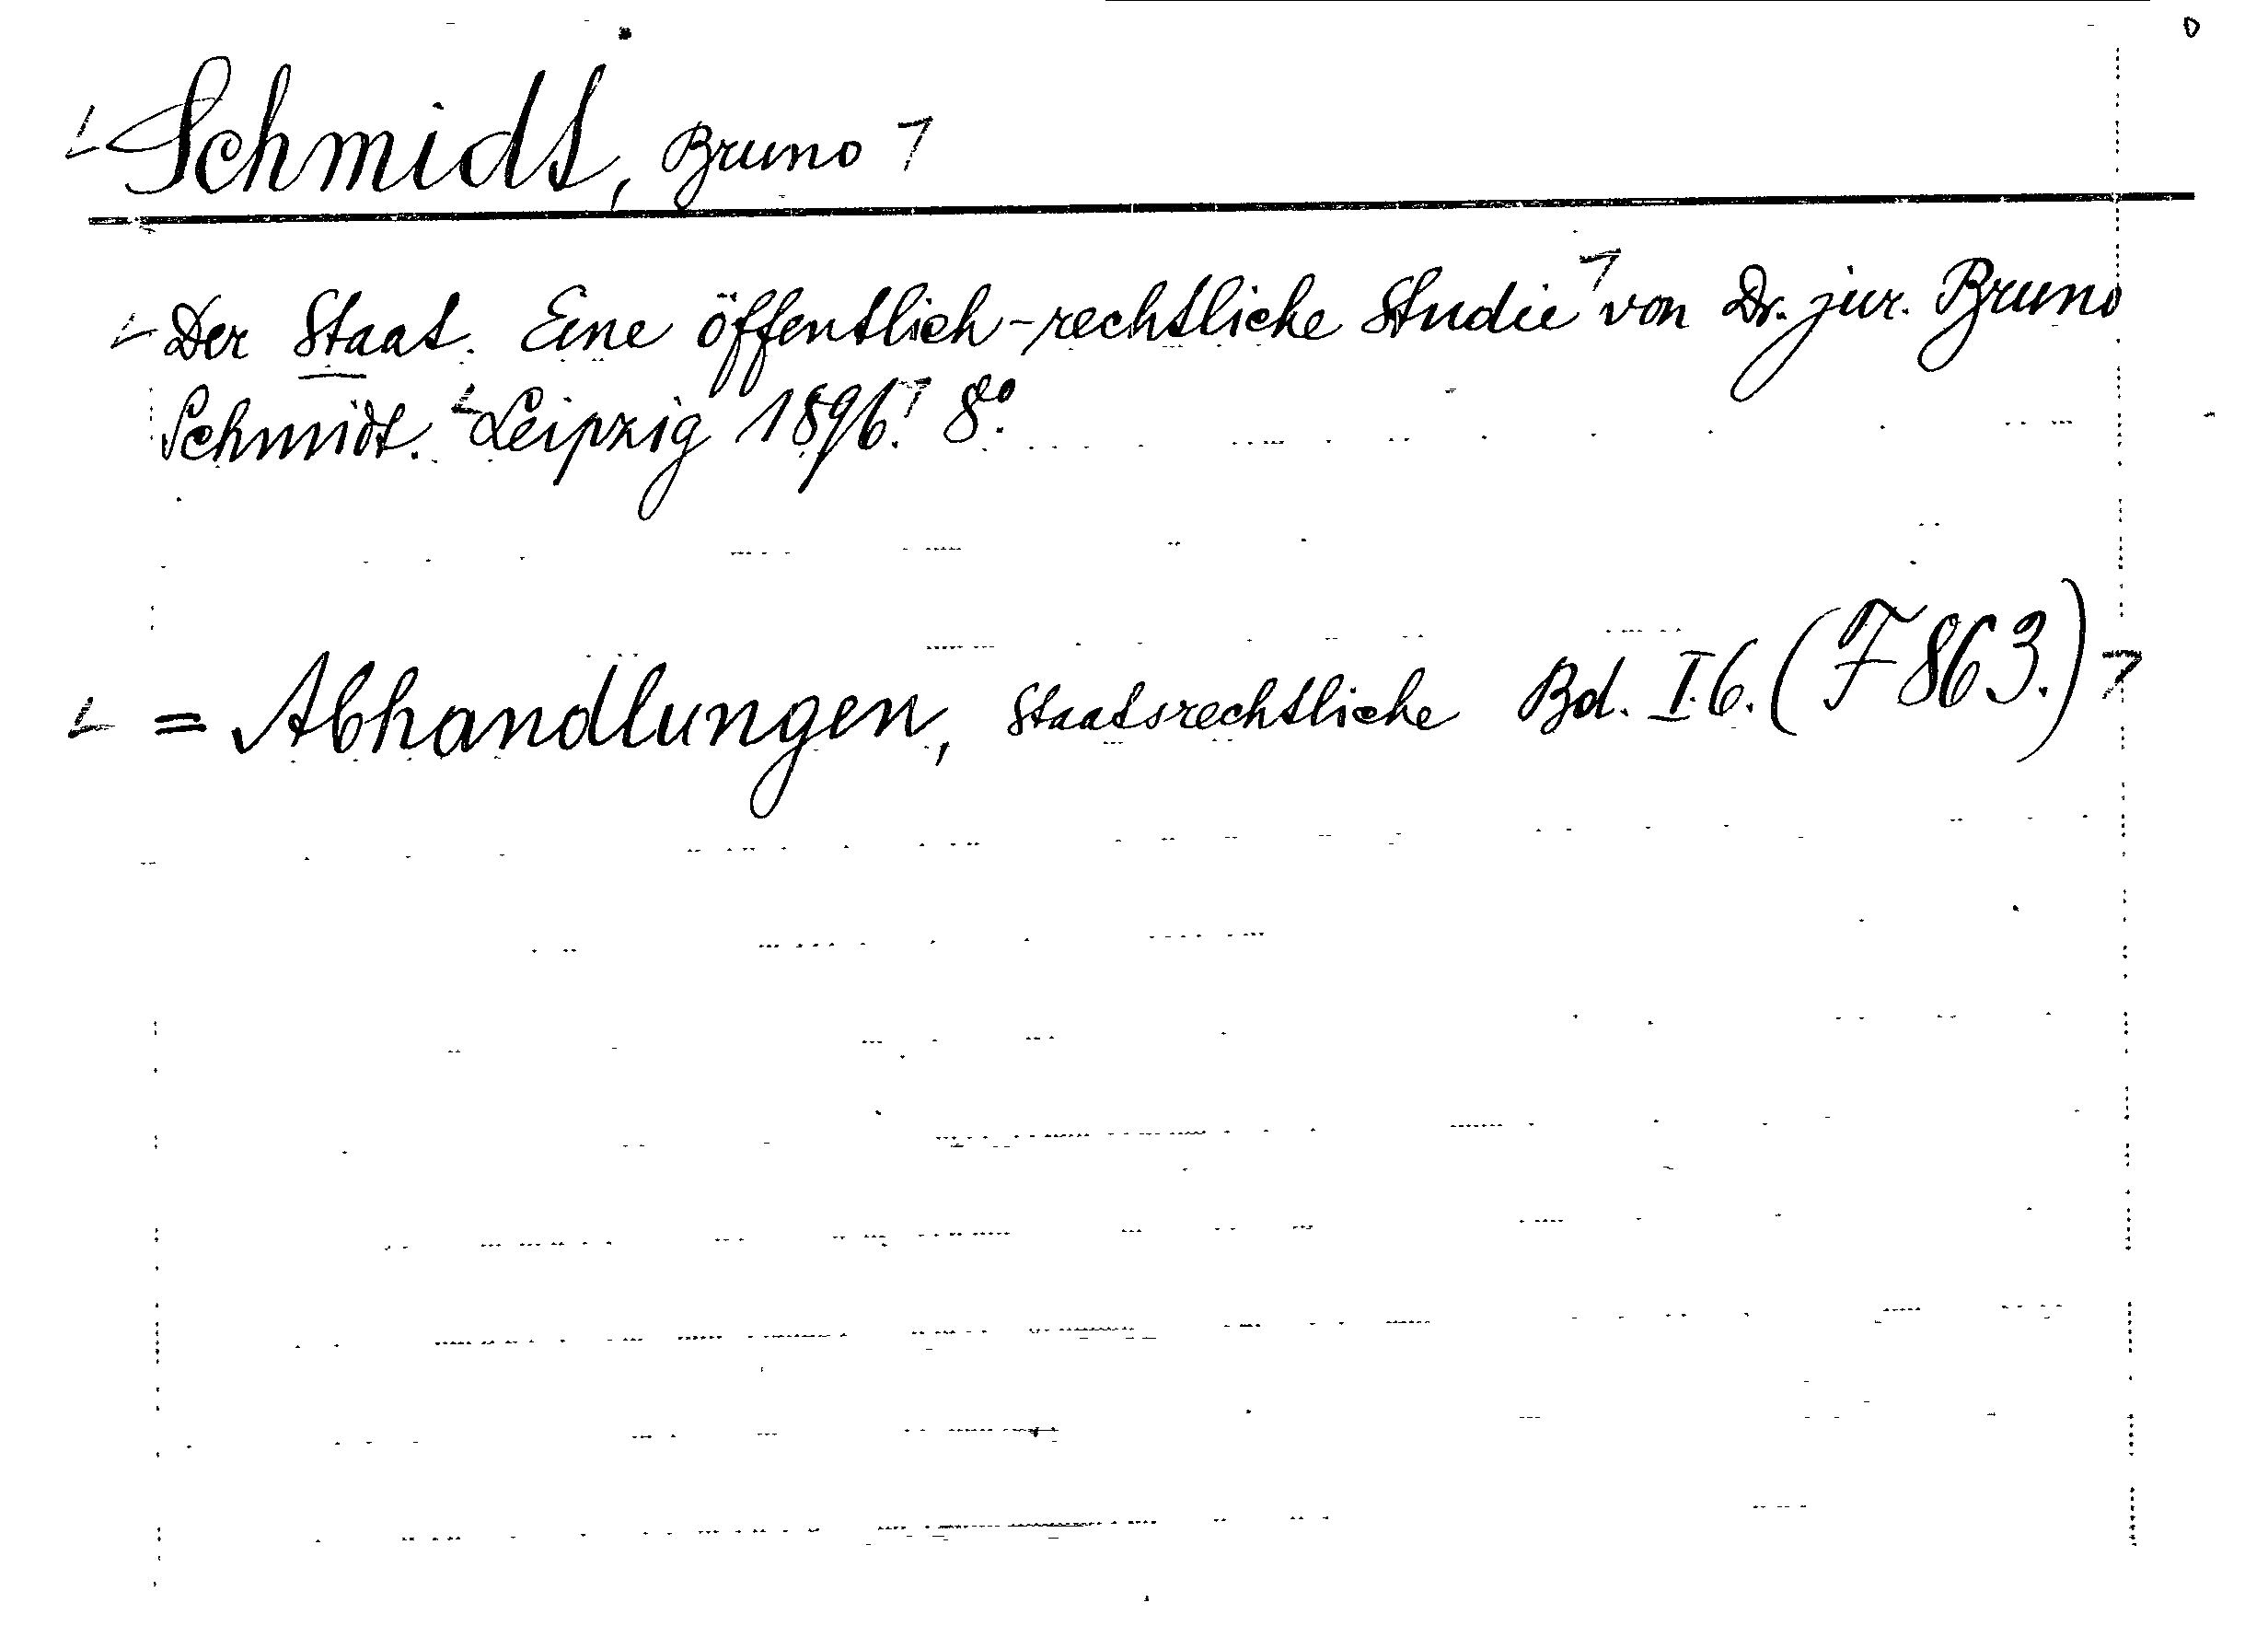 Schmidt, Bruno
Der Staat. Eine öffentlich-rechtliche Studie von Dr. jur. Bruno
Schmidt. Leipzig 1896. 8°.
= Abhandlungen, staatsrechtliche Bd. I.6. (F 863.)